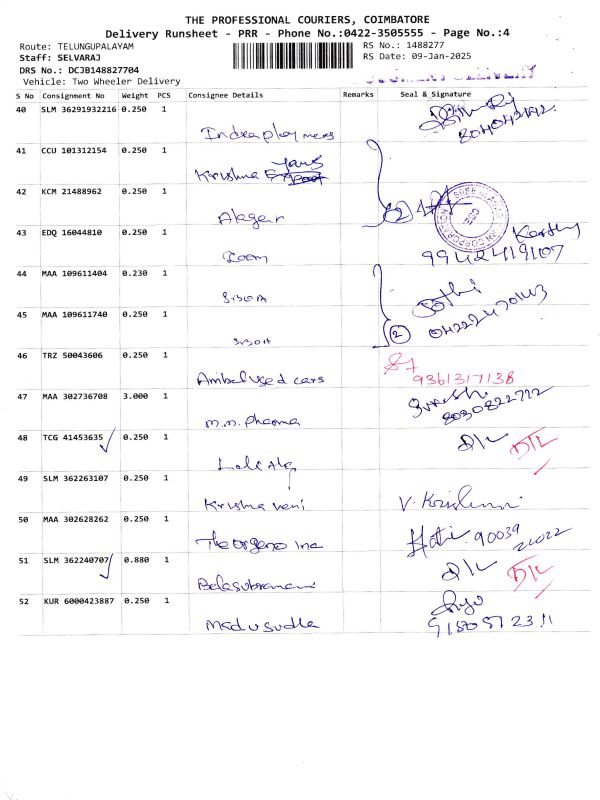 THE PROFESSIONAL COURIERS, COIMBATORE
Delivery Runsheet - PRR - Phone No.:0422-3505555 - Page No.:4
Route: TELUNGUPALAYAM
RS No.: 1488277
Staff: SELVARAJ
RS Date: 09-Jan-2025
DRS No.: DCJB148827704
Vehicle: Two Wheeler Delivery
S No Consignment No Weight PCS Consignee Details Remarks Seal & Signature
40 SLM 36291932216 0.250 1
41 CCU 101312154 0.250 1
Krishna
42 KCM 21488962 0.250 1
Alagar
43 EDQ 16044810 0.250 1
Zoom
99424 19107
44 MAA 109611404 0.230 1
45 MAA 109611740 0.250 1
2
46 TRZ 50043606 0.250 1
Ambal Used cars
9361317138
47 MAA 302736708 3.000 1
m.m. pharma
Suresh
8030822722
48 TCG 41453635 0.250 1
D/L D/L
49 SLM 362263107 0.250 1
Krishna veni
V. Krishnan
50 MAA 302628262 0.250 1
The orgeno inc
Hari 90039
51 SLM 362240707 0.880 1
D/L D/L
Balasubramani
52 KUR 6000423887 0.250 1
Madusudha